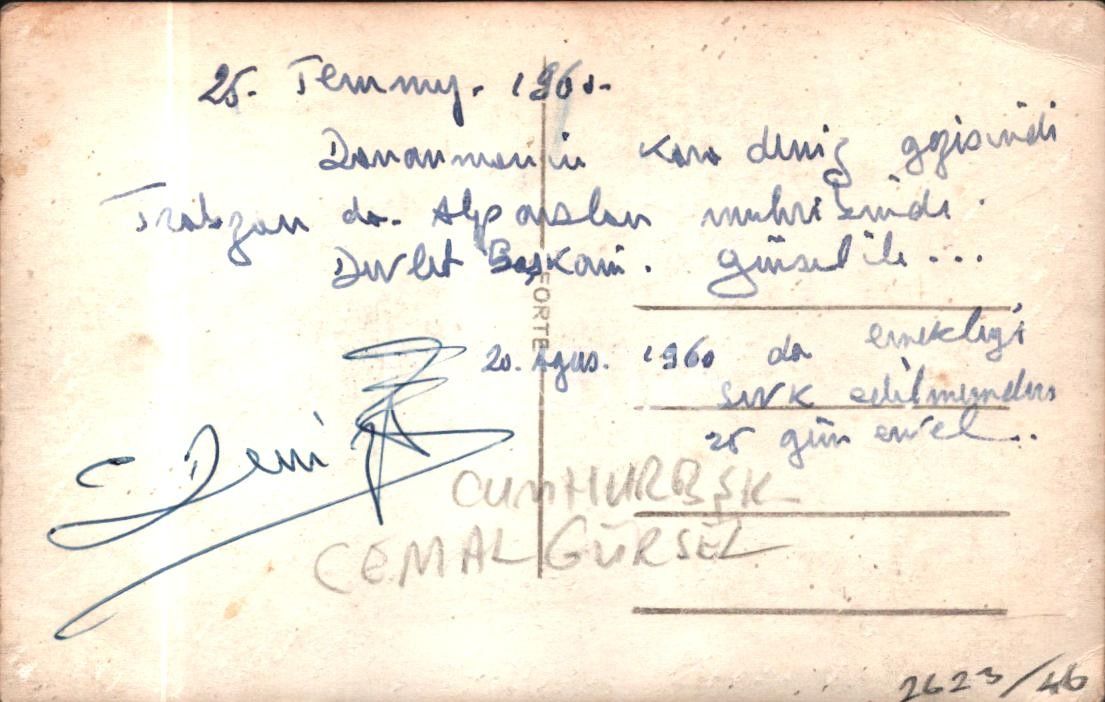 25. Temmuz. 1960.
Donanmanin Kara deniz gezisinde
Trabzon da. Alp arslan muhribinde.
Devlet Başkanı. Gürsel ile...
FORTE
20. Agus. 1960 da emekliğe
sevk edilmemden
25 gün evvel..
CUMHURBŞK
CEMAL GÜRSEL
2623/46